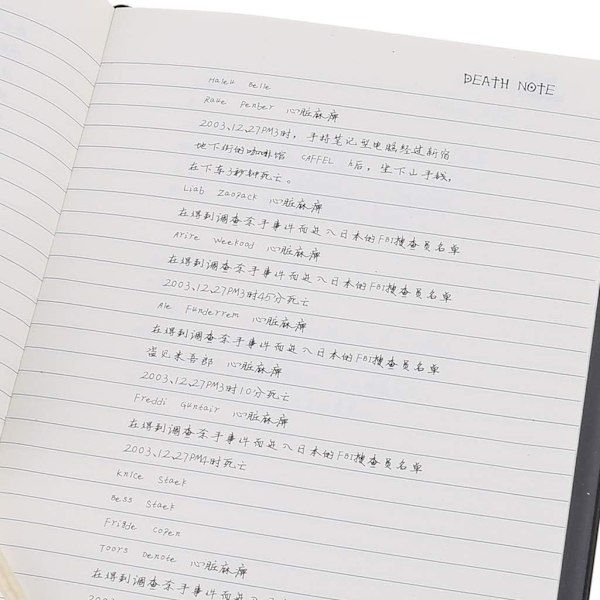 DEATH NOTE
Halek Belle
Rake Penber 心脏麻痹
2003、12、27PM3时，手持笔记型电脑经过新宿
地下街的咖啡馆 CAFFEL 后，坐下山手线，
在下车3秒钟死亡。
Liab Zaopack 心脏麻痹
在得到调查杀手事件而进入日本的FBI搜查员名单
Arire Weekood 心脏麻痹
在得到调查杀手事件而进入日本的FBI搜查员名单
2003、12、27PM3时45分死亡
Ale Funderrem 心脏麻痹
在得到调查杀手事件而进入日本的FBI搜查员名单
盗见来吾郎 心脏麻痹
2003、12、27PM3时10分死亡
Freddi Guntair 心脏麻痹
在得到调查杀手事件而进入日本的FBI搜查员名单
2003、12、27PM4时死亡
Knice Staek
Bess Staek
Frigde Copen
Toors Denote 心脏麻痹
在得到调查杀手事件而进入日本的FBI搜查员名单